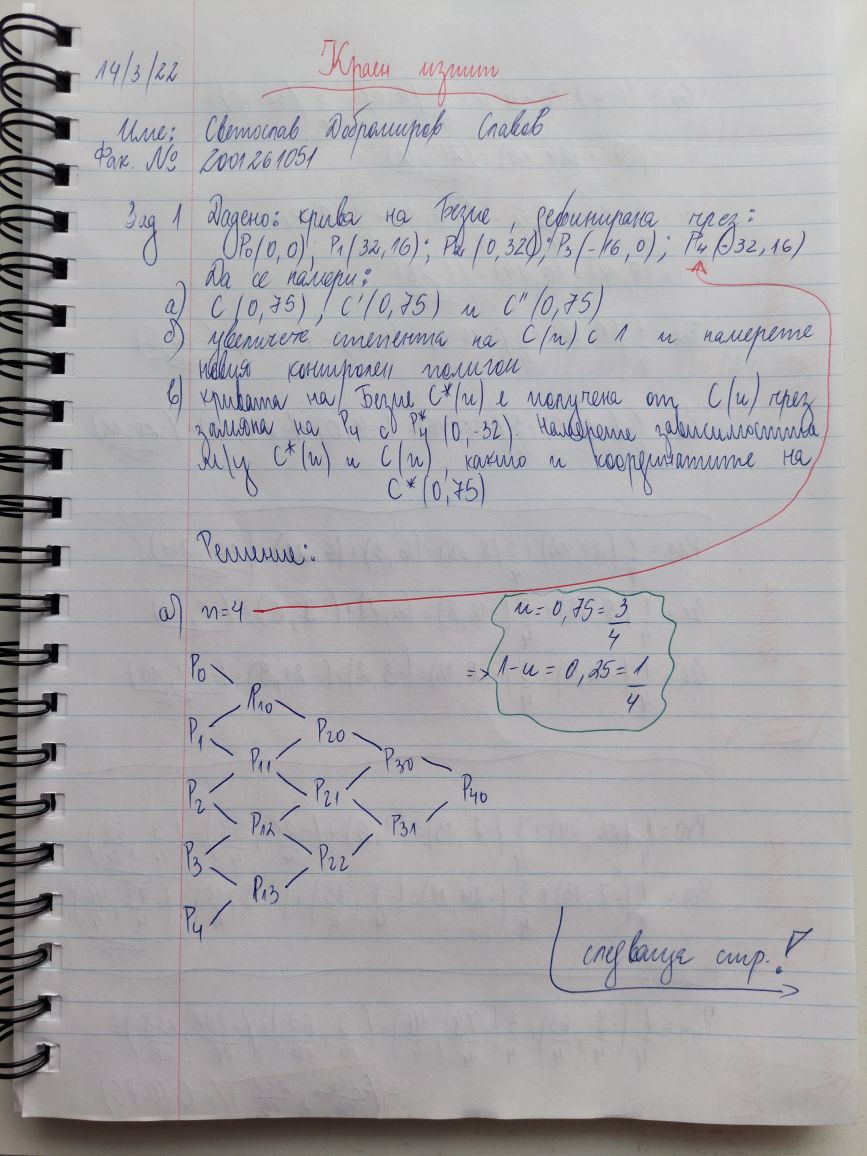 14/3/22 Краен изпит
Име: Светослав Добромиров Славов
Фак. № 2001261051
Зад 1 Дадено: крива на Безие, дефинирана чрез:
P0(0,0); P1(32,16); P2(0,32); P3(-16,0); P4(-32,16)
Да се намери:
а) C(0,75), C'(0,75) и C''(0,75)
б) увеличете степента на C(u) с 1 и намерете
новия контролен полигон
в) кривата на Безие C*(u) е получена от C(u) чрез
замяна на P4 с P4*(0,-32). Намерете зависимостта
м/у C*(u) и C(u), както и координатите на
C*(0,75)
Решение:
а) n=4
u = 0,75 = 3/4
=> 1-u = 0,25 = 1/4
P0
P10
P1 P20
P11 P30
P2 P21 P40
P12 P31
P3 P22
P13
P4
следваща стр.!